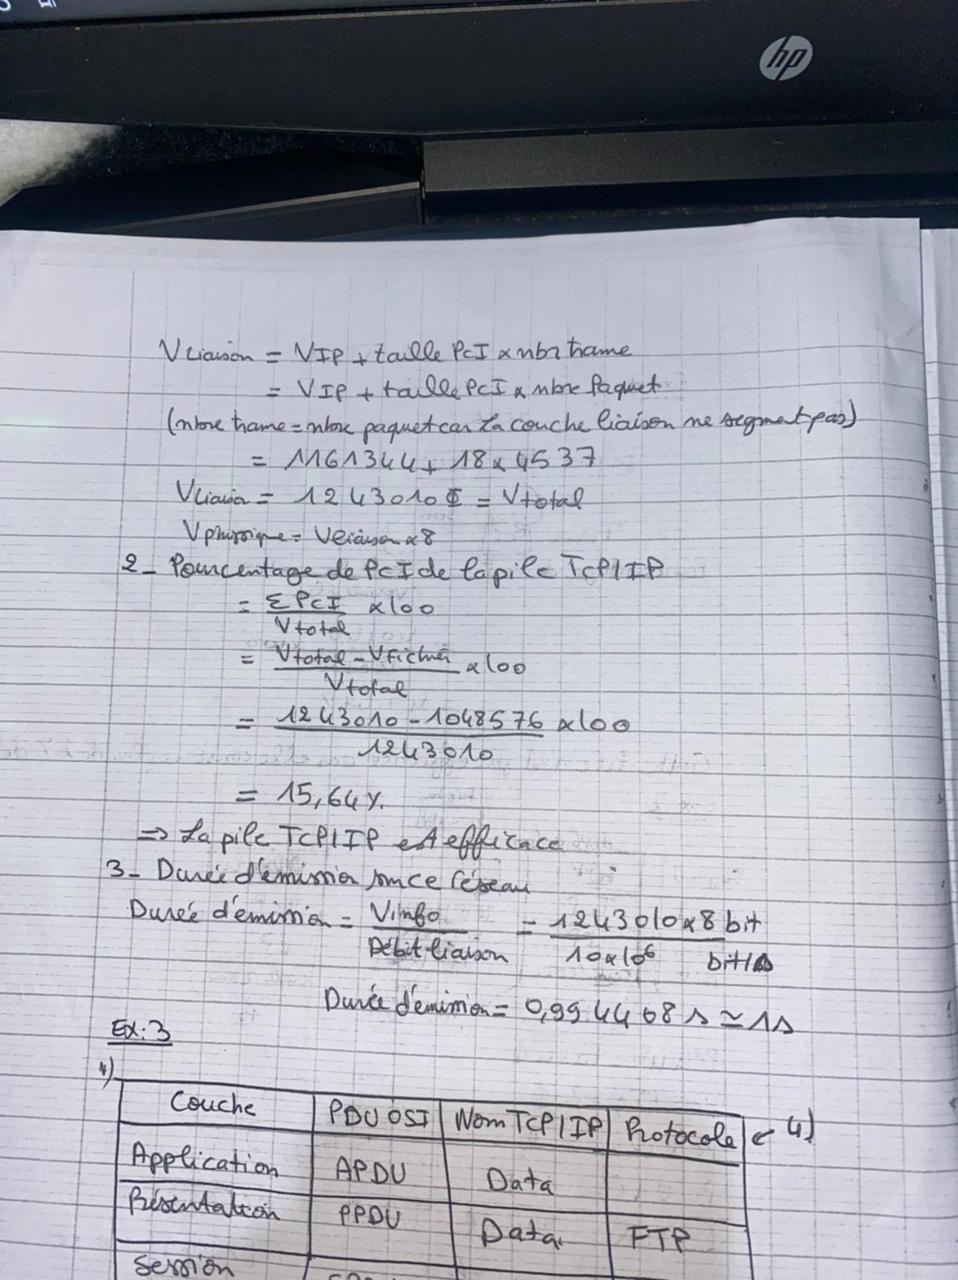 hp
Vliaison = VIP + taille PCI x nbr trame
= VIP + taille PCI x nbre Paquet
(nbre trame = nbre paquet car la couche liaison ne segment pas)
= 1161344 + 18 x 4537
Vliaison = 1243010 = Vtotal
Vphysique = Vliaison x 8
2 - Pourcentage de PCI de la pile TCP/IP
= Σ PCI / Vtotal x 100
= Vtotal - Vfichier / Vtotal x 100
= 1243010 - 1048576 / 1243010 x 100
= 15,64 %.
=> La pile TCP/IP est efficace
3 - Durée d'émission sur ce réseau
Durée d'émission = Vinfo / Débit liaison = 1243010 x 8 bit / 10 x 10⁶ bit/s
Durée d'émission = 0,994408 s ≃ 1s
Ex: 3
1)
Couche PDU OSI Nom TCP/IP Protocole ← 4)
Application APDU Data
Présentation PPDU Data FTP
Session